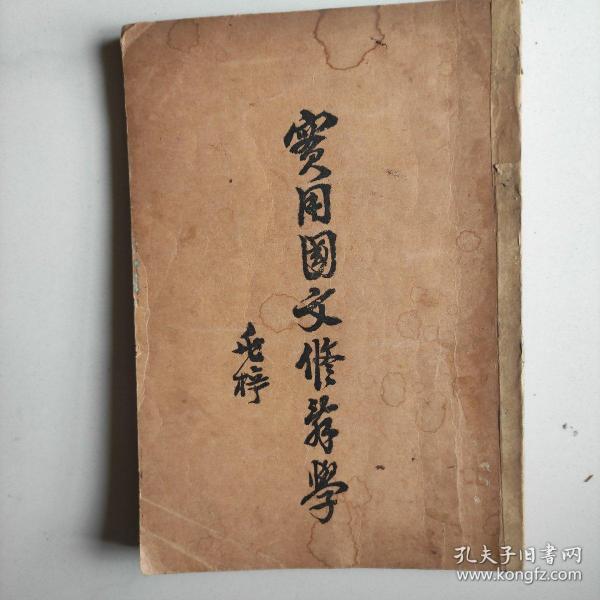 實用國文修辭學
孔夫子旧书网
www.kongfz.com